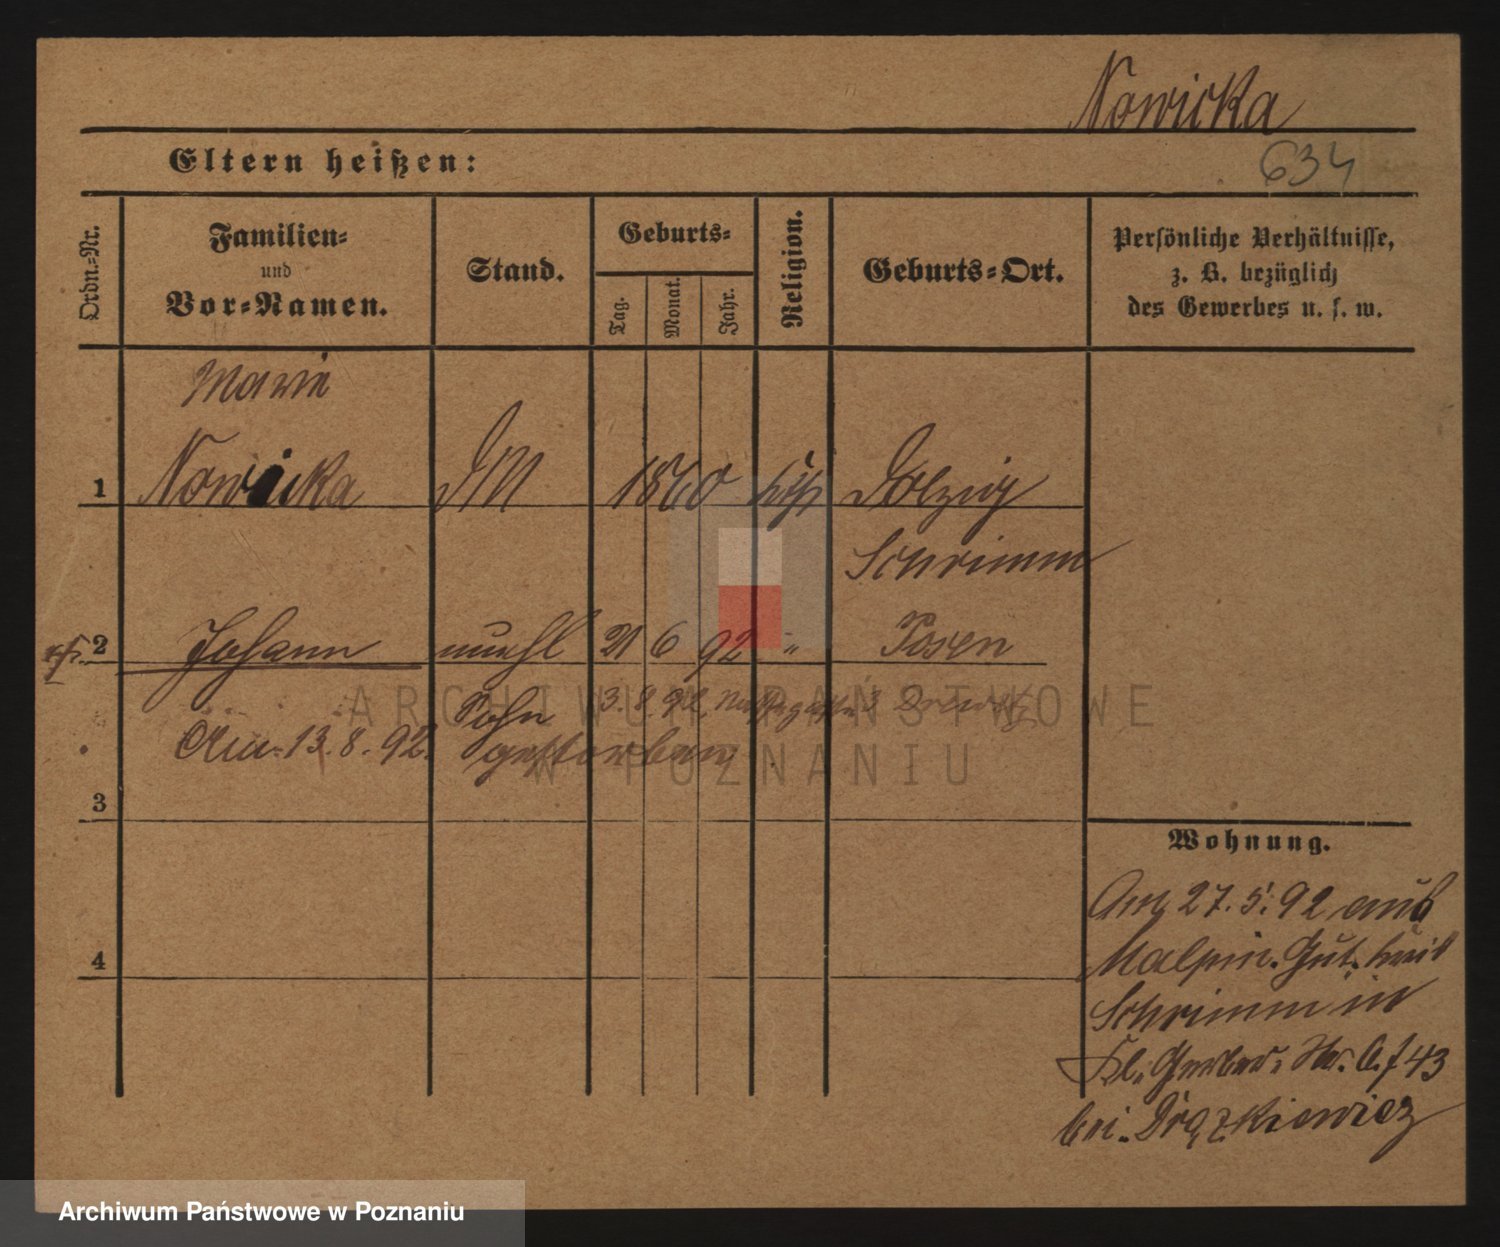 Nowicka
Eltern heißen:
634
Ordn.-Nr.
Familien-
und
Vor-Namen.
Stand.
Geburts-
Tag.
Monat.
Jahr.
Religion.
Geburts-Ort.
Persönliche Verhältnisse,
z. B. bezüglich
des Gewerbes u. s. w.
Marie
1 Nowicka DM 1860 kath Dolzig
Schrimm
2 Johann unehl 21 6 92 " Posen
Sohn 3. 8. 92
13. 8. 92. gestorben
3
Wohnung.
4
Am 27. 5. 92 aus
Malpin. Gut. Kreis
Schrimm in
Kl. Gerber. Str. 43
bei Drążkiewicz
ARCHIWUM PAŃSTWOWE
W POZNANIU
Archiwum Państwowe w Poznaniu